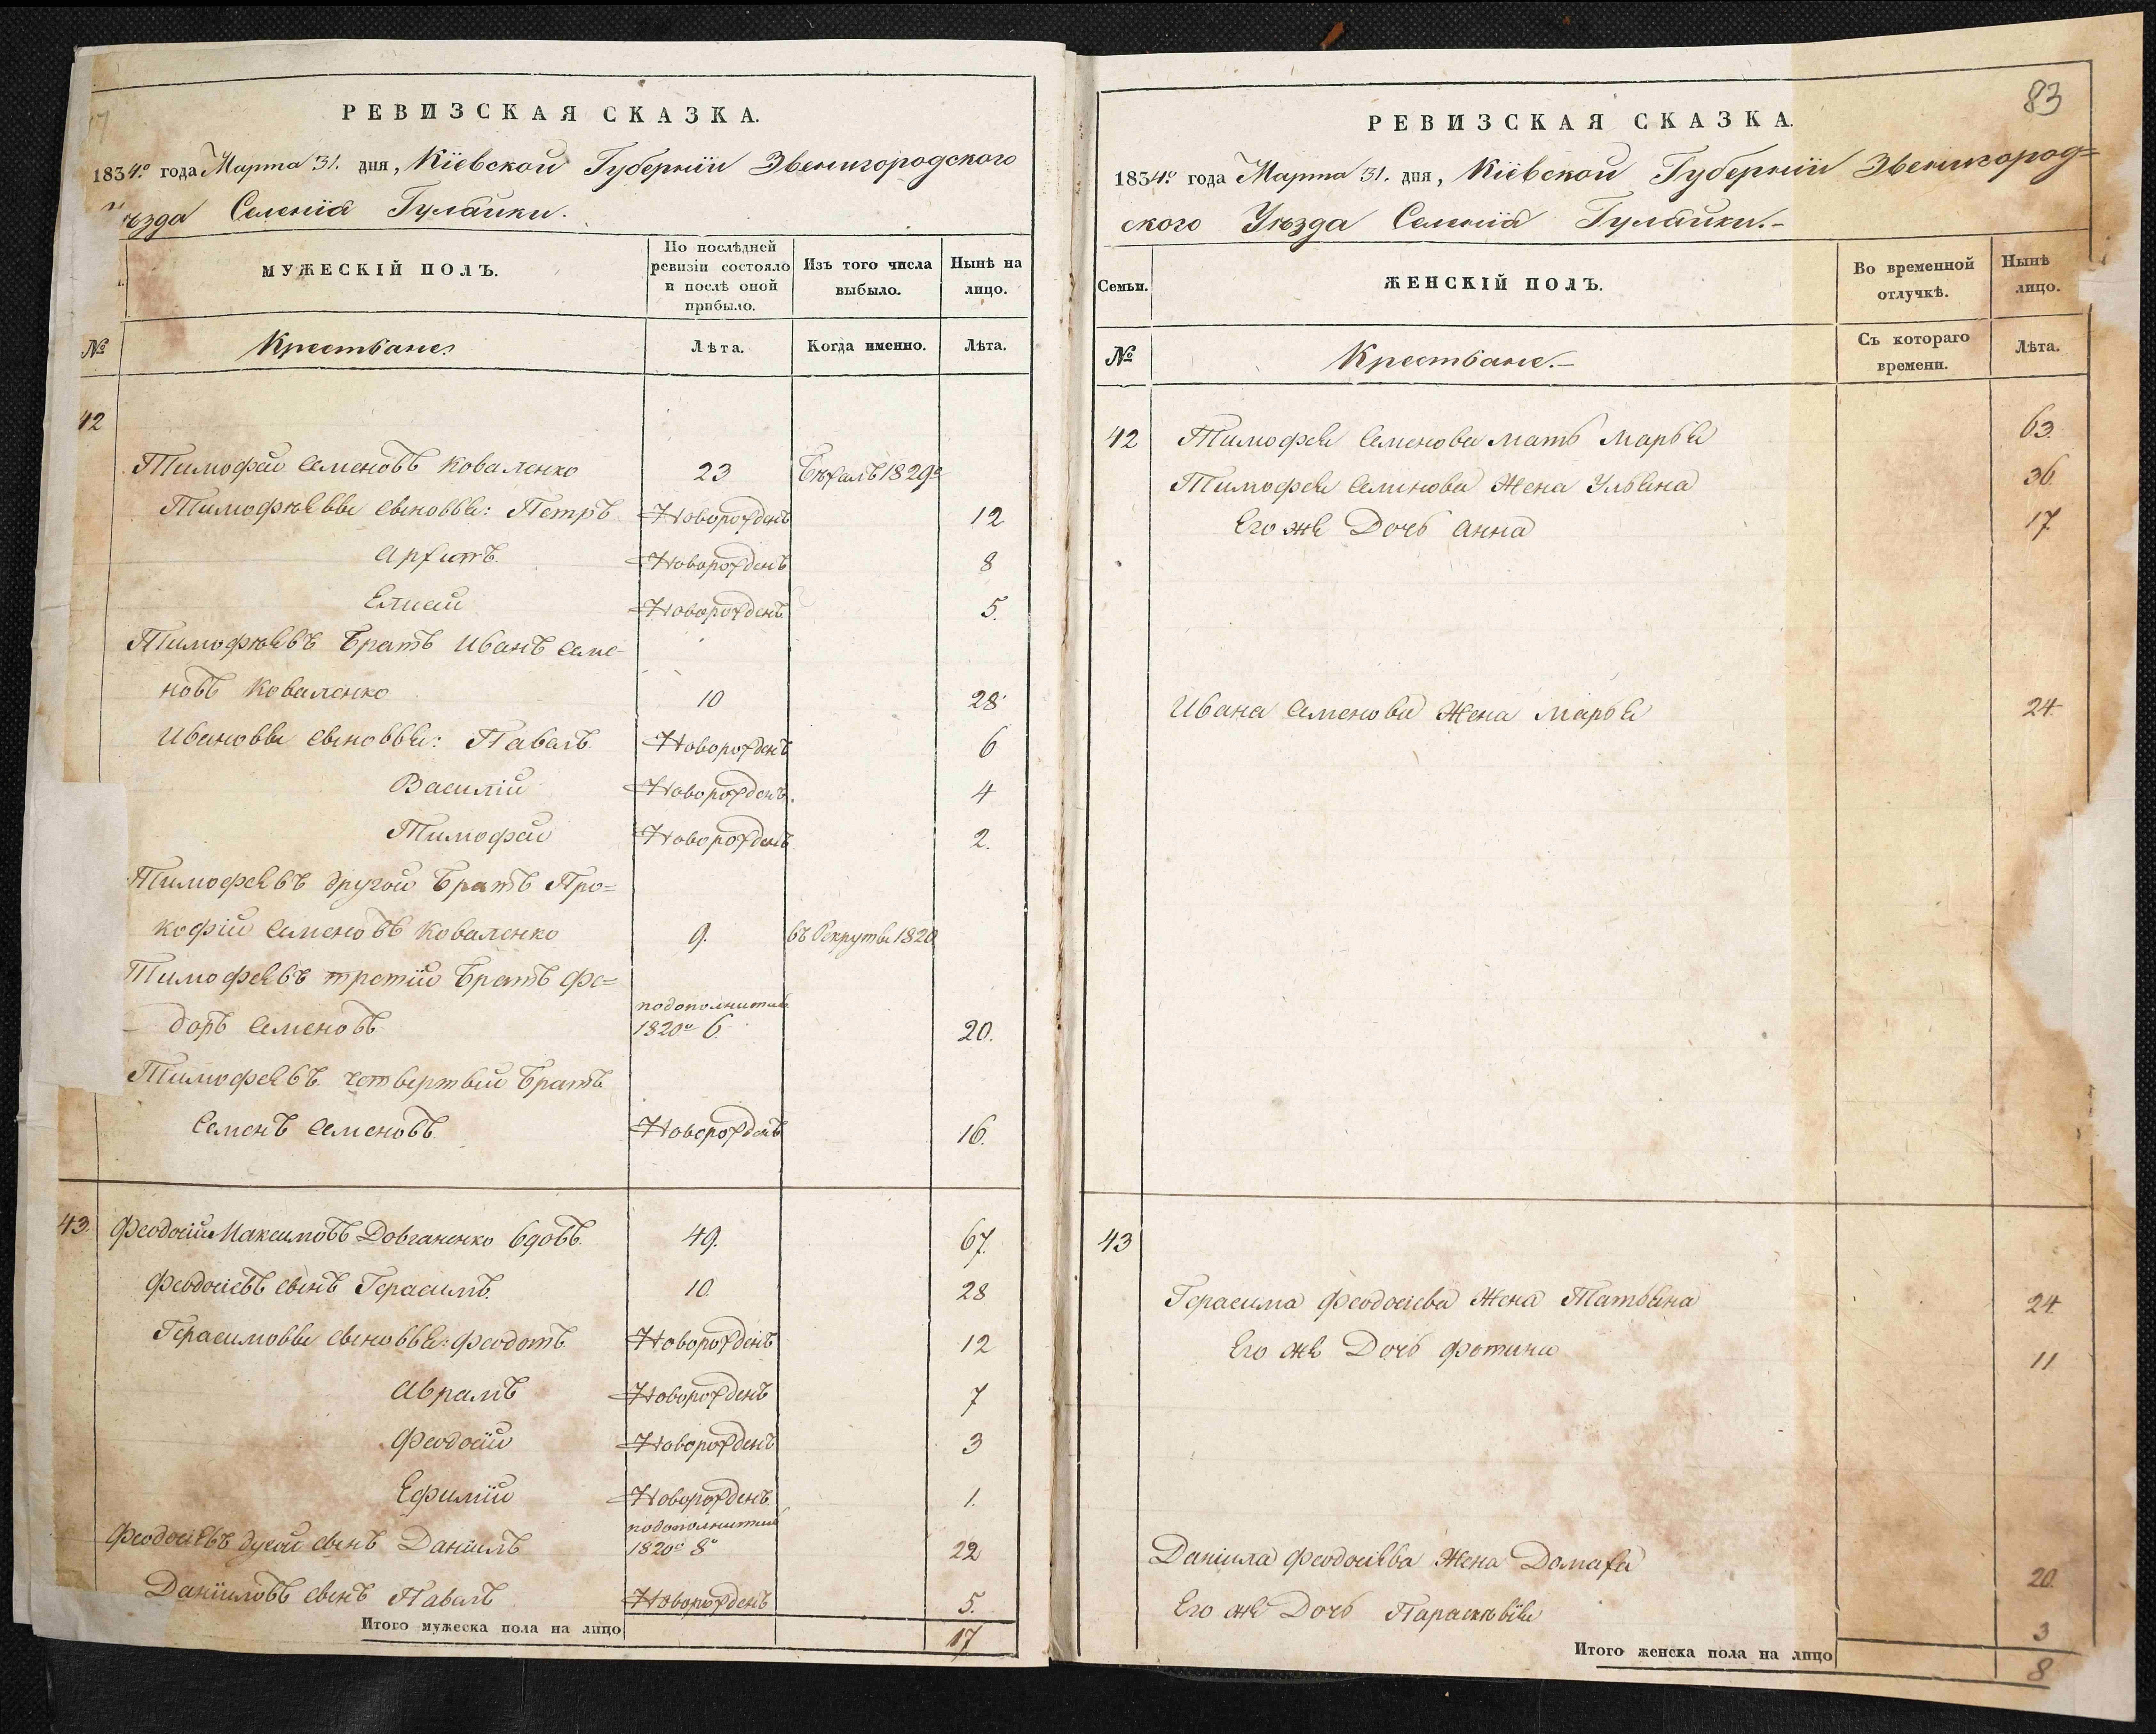 РЕВИЗСКАЯ СКАЗКА.
1834.º года Марта 31. дня, Кіевской Губерніи Звенигородского
ѣзда Селенія Гулайки.
МУЖЕСКІЙ ПОЛЪ.
По послѣдней ревизіи состояло и послѣ оной прибыло.
Изъ того числа выбыло.
Нынѣ на лицо.
№ Крестьяне.
Лѣта.
Когда именно.
Лѣта.
42
Тимофей Семеновъ Коваленко 23 Бѣжалъ 1829º
Тимофѣевы сыновья: Петръ Новорожденъ 12
Архипъ. Новорожденъ 8
Елисей Новорожденъ 5.
Тимофѣевъ Братъ Иванъ Семе-
новъ Коваленко 10 28
Ивановы сыновья: Павелъ. Новорожденъ 6
Василій Новорожденъ. 4
Тимофей Новорожденъ 2.
Тимофеевъ другой Братъ Про=
кофій Семеновъ Коваленко 9. въ Рекруты 1820
Тимофеевъ третій Братъ Фе=
доръ Семеновъ подополнител 1820º 6. 20.
Тимофеевъ четвертый Братъ
Семенъ Семеновъ Новорожденъ 16.
43. Феодосій Максимовъ Довганенко вдовъ. 49. 67.
Феодосіевъ сынъ Герасимъ. 10. 28
Герасимовы сыновья: Феодотъ. Новорожденъ 12
Аврамъ Новорожденъ 7
Феодосій Новорожденъ 3
Ефимій Новорожденъ 1.
Феодосіевъ другой сынъ Даніилъ подополнител 1820º 8º 22
Даніиловъ сынъ Павелъ Новорожденъ 5.
Итого мужеска пола на лицо 17
83
РЕВИЗСКАЯ СКАЗКА.
1834.º года Марта 31. дня, Кіевской Губерніи Звенигород=
ского Уѣзда Селенія Гулайки.-
Семьи.
ЖЕНСКІЙ ПОЛЪ.
Во временной отлучкѣ.
Нынѣ лицо.
№ Крестьяне.-
Съ котораго времени.
Лѣта.
42 Тимофея Семенова мать Марья 63.
Тимофея Семенова Жена Ульяна 36.
Его же Дочь Анна 17.
Ивана Семенова Жена Марья 24.
43
Герасима Феодосіева Жена Татьяна 24.
Его же Дочь Фотина 11
Даніила Феодосіева Жена Домаха 20.
Его же Дочь Параскѣвія 3
Итого женска пола на лицо 8